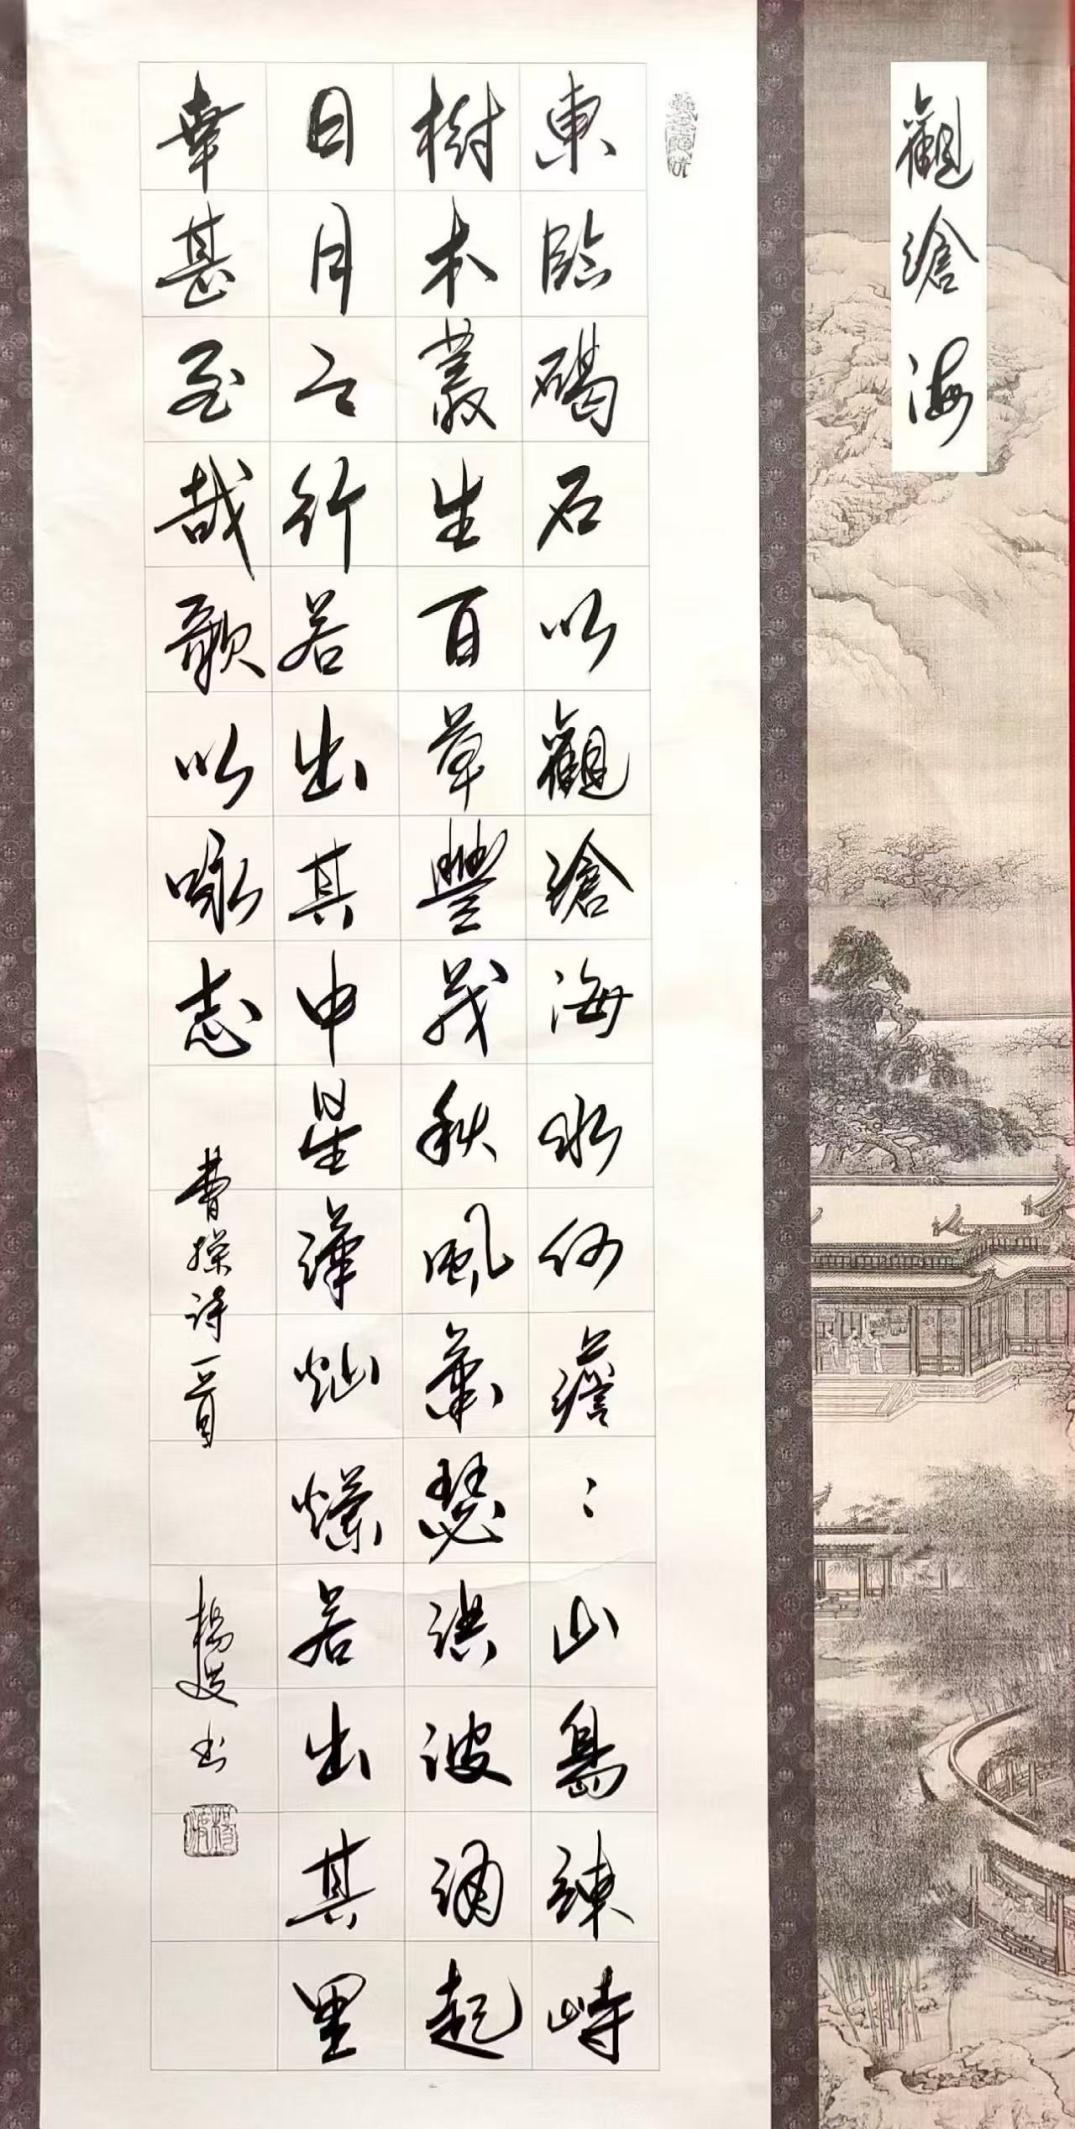 觀滄海
東臨碣石以觀滄海水何澹〻山島竦峙
樹木叢生百草豐茂秋風蕭瑟洪波涌起
日月之行若出其中星漢灿爛若出其里
幸甚至哉歌以咏志
曹操詩一首
楊波书